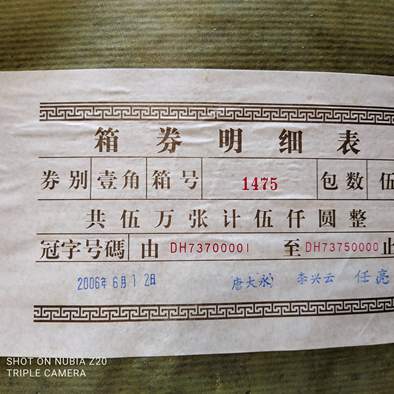 箱券明细表
券别 壹角 箱号 1475 包数 伍
共伍万张计伍仟圆整
冠字号碼 由 DH73700001 至 DH73750000 止
2006年6月12日 唐大永 李兴云 任亮
SHOT ON NUBIA Z20
TRIPLE CAMERA